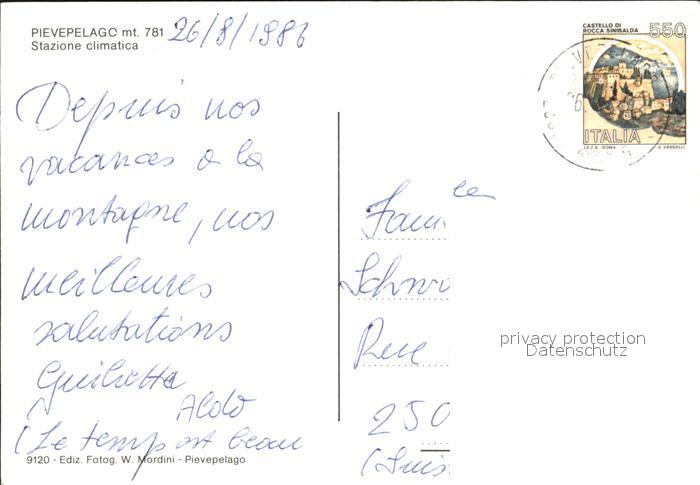 PIEVEPELAGO mt. 781
Stazione climatica
26/8/1986
CASTELLO DI
ROCCA SINIBALDA
550
ITALIA
I.P.Z.S. - ROMA E. VANGELLI
Depuis nos
vacances a la
montagne, nos
meilleures
salutations
Giulietta
Aldo
(Le temp est beau
9120 - Ediz. Fotog. W. Mordini - Pievepelago
Fami
lle
Schw
Rue
250
(Suis
privacy protection
Datenschutz